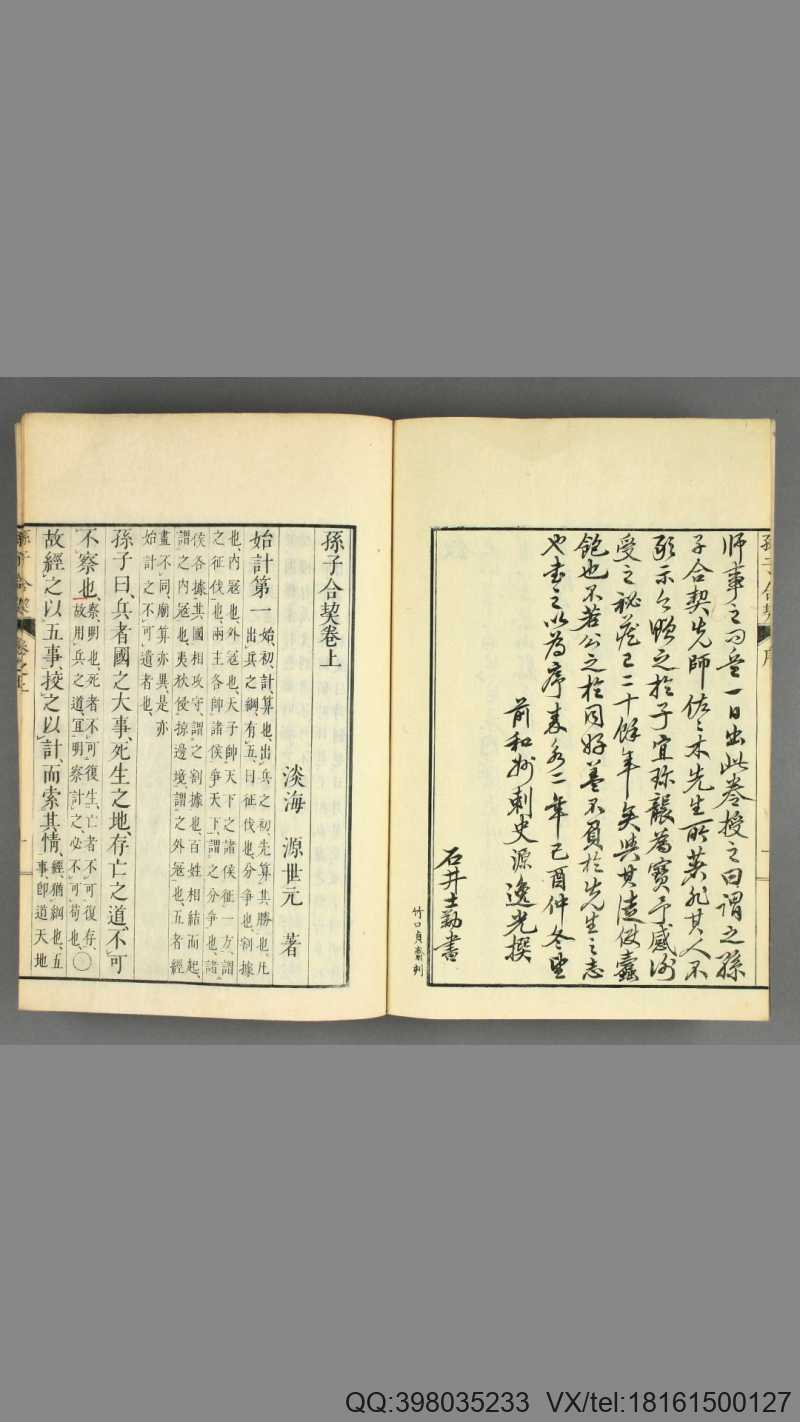 孫子合契 序
師事之一日出此卷授之曰謂之孫
子合契先師佐々木先生所著非其人不
示今贈之於子宜珍襲為寶予感謝
受之秘蔵已二十餘年矣與其遺蠹
飽也不若公之於同好蓋不負於先生之志
也書之以為序嘉永二年己酉仲冬望
前和州刺史源逸光撰
石井士勤書
竹口貞齋刊
孫子合契卷上
淡海 源世元 著
始計第一
始、初、計、算也、出兵之初、先算其勝也、凡
出兵之綱、有五、曰征伐也、分爭也、割據
也、内冦也、外冦也、天子帥天下之諸侯征一方、謂
之征伐也、兩主各帥諸侯爭天下、謂之分爭也、諸
侯各據其國相攻守、謂之割據也、百姓相結而起、
謂之内冦也、夷狄侵掠邊境、謂之外冦也、五者經
畫不同、廟算亦異、是亦
始計之不可遺者也、
孫子曰、兵者國之大事、死生之地、存亡之道、不可
不察也、
察、明也、死者不可復生、亡者不可復存、
故用兵之道、宜明察計之、必不可苟也、〇
故經之以五事、挍之以計、而索其情、
經、猶綱也、五
事、卽道天地
孫子合契 卷之上
QQ:398035233 VX/tel:18161500127